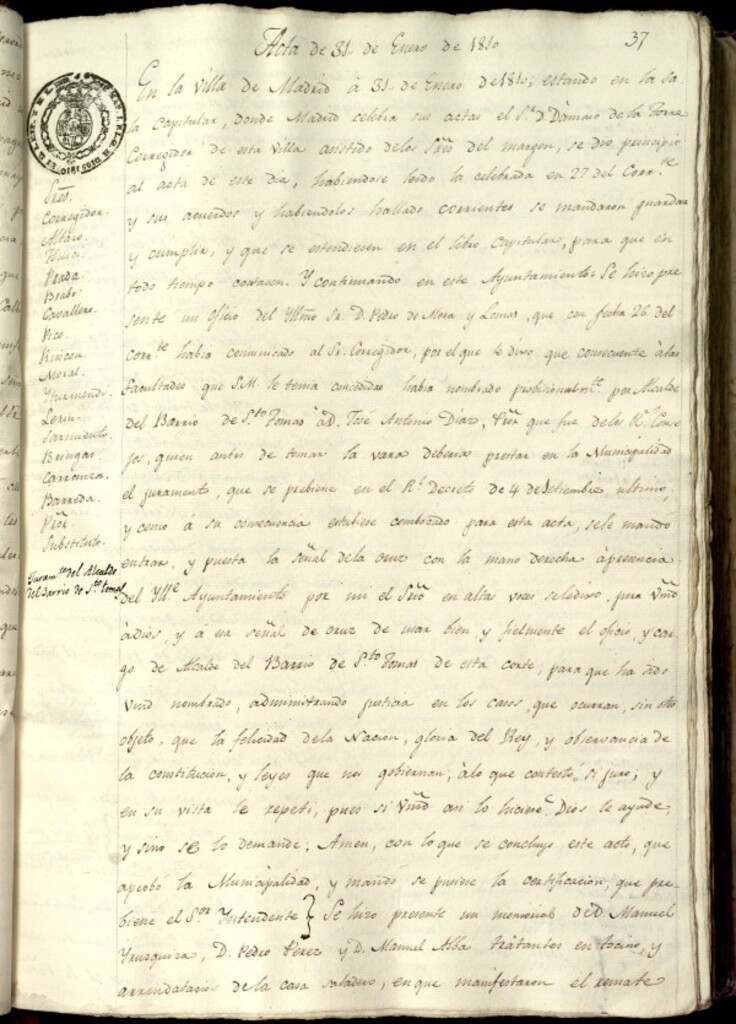 37
Acta de 31 de Enero de 1810
En la villa de Madrid á 31 de Enero de 1810; estando en la sa
la Capitular, donde Madrid celebra sus actas el Sr. D. Dámaso de la Torre
Corregidor de esta villa asistido de los Sres del margen, se dio principio
al acta de este dia, habiendose leido la celebrada en 27 del Corrte
y sus acuerdos y habiendolos hallado corrientes se mandaron guardar
y cumplir, y que se estendiesen en el libro Capitular, para que en
todo tiempo constasen. Y continuando en este Ayuntamiento Se hizo pre
sente un oficio del Yllmo Sr. D. Pedro de Mora y Lomas, que con fecha 26 del
Corrte habia comunicado al Sr. Corregidor, por el que le dixo que consecuente á las
facultades que S.M. le tenia concedidas habia nombrado probisionalmte por Alcalde
del Barrio de Sto Tomas á D. José Antonio Diaz, que fue de los Rs Conse
jos, quien antes de tomar la vara deberia prestar en la Municipalidad
el juramento, que se prebiene en el Rl Decreto de 4 de Setiembre ultimo,
y como á su consecuencia estubiese combocado para esta acta, se le mandó
entrar, y puesta la señal de la cruz con la mano derecha á presencia
del Ylle Ayuntamiento por mi el Srio en altas voces se le dixo, jura Vmd
á dios, y á una señal de cruz de usar bien, y fielmente el oficio, y car
go de Alcalde del Barrio de Sto Tomas de esta corte, para que ha sido
Vmd nombrado, administrando justicia en los casos, que ocurran, sin otro
objeto, que la felicidad de la Nacion, gloria del Rey, y observancia de
la constitucion, y leyes que nos gobiernan; á lo que contestó, si juro; y
en su vista le repeti, pues si Vmd asi lo hiciere Dios le ayude,
y sino se lo demande; Amen, con lo que se concluyó este acto, que
aprobó la Municipalidad, y mandó se pusiese la certificacion, que pre-
biene el Sor Intendente } Se hizo presente un memorial de D. Manuel
Yruzquiza, D. Pedro Perez y D. Manuel Alba tratantes en tocino, y
arrendatarios de la casa saladero, en que manifestaron el remate
Sres.
Corregidor.
Alfaro.
Prada.
Brabo.
Cavallero.
Rico.
Rincon.
Moral.
Yturmendi.
Lorin.
Sarmiento.
Bringas.
Carranza.
Barreda.
Substituto.
Juramto del Alcalde
del Barrio de Sto tomas